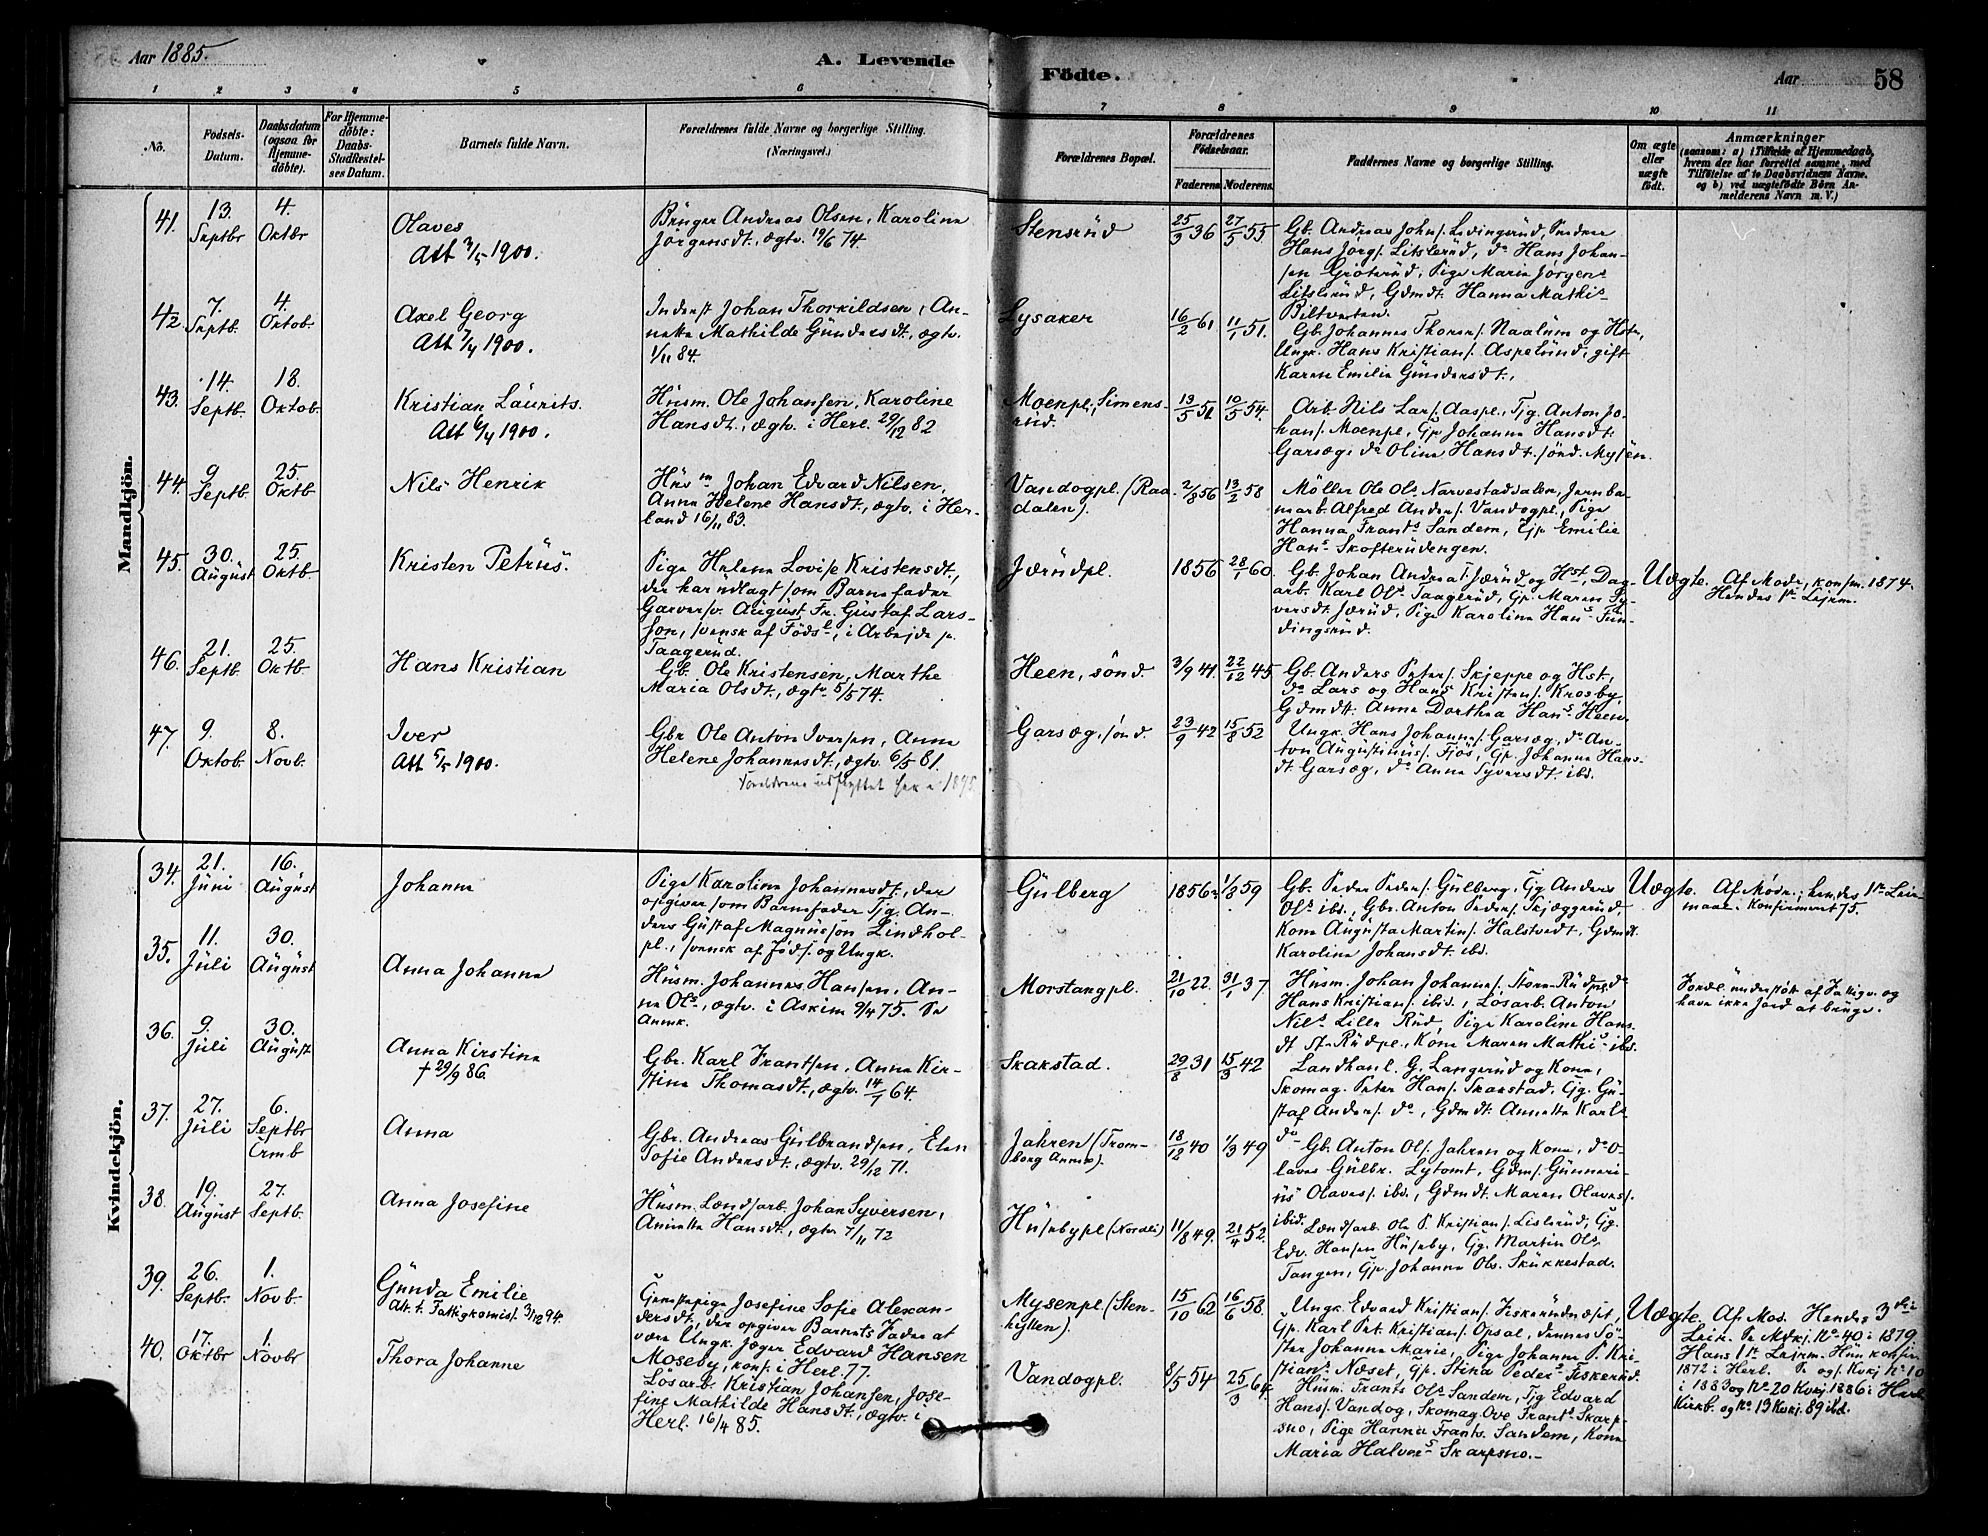 Aar 1885.
A. Levende
Födte.
Aar
58
1 2 3 4 5 6 7 8 9 10 11
No.
Fødsels-
Datum.
Daabsdatum
(ogsaa for
Hjemme-
døbte).
For Hjemme-
döbte:
Daabs-
Stadfæstel-
ses Datum.
Barnets fulde Navn.
Forældrenes fulde Navne og borgerlige Stilling.
(Næringsvei.)
Forældrenes Bopæl.
Forældrenes
Födselsaar.
Faderens
Moderens.
Faddernes Navne og borgerlige Stilling.
Om ægte
eller
uægte
födt.
Anmærkninger
(saasom: a) i Tilfælde af Hjemmedaab,
hvem der har forrettet samme, med
Tilföielse af to Daabsvidners Navne,
og b) ved uægtefödte Börn An-
melderens Navn m. V.)
Mandkjön.
41.
13.
Septbr
4.
Oktbr
Olaves
Att 3/5 1900.
Brüger Andreas Olsen, Karoline
Jörgensdt., ægtv. 19/6 74.
Stensrüd
25/3 36
27/5 55
Gb. Andreas Johns. Levingsrüd, Peder
Hans Jörgs. Litslerüd, do Hans Johan-
sen Grioterüd, Pige Maria Jörgens
Litslerüd, Gdmdt. Hanna Mathis
Biltvertsen.
42
7.
Septb.
4.
Oktob.
Axel Georg
Att 7/4 1900.
Inderst Johan Thorkildsen, An-
netta Mathilde Gündersdt., ægtv.
1/11 84.
Lysaker
16/2 61
11/1 51.
Gb. Johannes Thores. Naalüm og Hst.,
Ungk. Hans Kristians. Aspelünd, gift
Karen Emilie Gündersdt.,
43.
14.
Septb.
18.
Oktob.
Kristian Laürits.
Att 6/4 1900.
Hüsm. Ole Johansen, Karoline
Hansdt., ægtv. i Herl. 29/12 82
Moenpl., Simens-
rüd.
13/5 51.
10/5 54.
Arb. Nils Lars. Aaspl., Tjg. Anton Jo-
hans. Moenpl., Gp. Johanna Hansdt.
Garsæg, do Olina Hansdt. sönd. Mysen.
44.
9
Septb
25.
Oktb
Nils Henrik
Hüsm Johan Edvard Nilsen,
Anna Helene Hansdt., ægtv. i Her-
land 16/11 83.
Vandogpl. (Raa-
dalen).
2/8 56
13/2 58
Möller Ole Ols. Narvestaddalen, Jernba-
narb. Alfred Anders. Vandogpl., Pige
Hanna Frants. Sandem, Gp Emilie
Hans. Skofterüdengen.
45.
30.
Aügüst
25.
Oktb.
Kristen Petrüs.
Pige Helene Lovise Kristensdt.,
der har üdlagt som Barnefader
Garversv. Aügüst Fr. Güstaf Lars-
son, svensk af Föds., i Arbejde p.
Taagerüd.
Jærüdpl.
1856
28/1 60
Gb. Johan Andreas. Jærüd og Hst., Dag-
arb. Karl Ols. Taagerüd, Gp. Maren Sy-
versdt. Jærüd, Pige Karoline Hans. Fün-
dingsrüd.
Uægte.
Af Modr., konfm. 1874.
Hendes 1ste Lejrm.
46.
21.
Septb.
25.
Oktb.
Hans Kristian
Gb. Ole Kristensen, Marthe
Maria Olsdt., ægtv. 5/5 74.
Heen, sönd.
3/9 41.
22/12 45
Gb. Anders Peters. Skjeppe og Hst.,
do Lars og Hans Kristens. Krosby
Gdmdt. Anna Dorthea Hans. Heen.
47.
9.
Oktob.
8.
Novb.
Iver
Att 5/5 1900.
Gbr Ole Anton Iversen, Anna
Helene Johannesdt., ægtv. 6/5 81.
Forældrene udflyttet
Garsæg, sönd.
23/9 42
15/8 52
Ungk. Hans Johannes. Garsæg, do An-
ton Aügüstinüs. Fjös, Gp. Johanne Hans-
dt. Garsæg, do Anna Syversdt. ibd.
Kvindekjön.
34.
21.
Jüni
16.
Aügüst
Johanne
Pige Karoline Johannesdt., der
opgiver som Barnefader Tjg. An-
ders Güstaf Magnüsson Lindhol-
pl., svensk af Föds. og Ungk.
Gülberg
1856.
1/8 59
Gb. Peder Peders. Gülberg, Tjg Anders
Ols. ibd., Gbr. Anton Peders. Skjæggerüd,
Kone Aügüsta Martins. Halstvedt, Gdmdt.
Karoline Johansdt. ibd.
Uægte.
Af Modr.; hendes 1ste Leir-
maal. Konfirmeret 75.
35.
11.
Jüli
30.
Aügüst
Anna Johanne
Hüsm. Johannes Hansen, An-
ne Ols., ægtv. i Askim 9/4 75. Se
Anmk.
Morstangpl.
21/10 22.
31/1 37.
Hüsm. Johan Johannes. Store-Rüdpl., do
Hans Kristians. ibid., Lösarb. Anton
Nils. Lille Rüd, Pige Karoline Hans-
dt St. Rüdpl., Kone Maren Mathis. ibd.
Foræl. ünderstöt. af Fattigv. og
have ikke Jord at brüge.
36.
9.
Jüli
30.
Aügüst
Anna Kirstine
† 29/9 86.
Gbr. Karl Frantsen, Anne Kir-
stine Thomasdt., ægtv. 14/1 64.
Skakstad.
29/8 31
15/3 42
Landhanl. G. Langerüd og Kone,
Skomag. Peter Hans. Skakstad, Tjg. Gü-
staf Anders. do, Gdmdt. Annette Karls
do
37.
27.
Jüli
6.
Septbr
Ömb
Anna
Gbr. Andreas Gülbrandsen, Elen
Sofie Andersdt., ægtv. 29/12 71.
Jahren (Trom-
borg Annex).
18/12 40
1/3 49
Gb. Anton Ols. Jahren og Kone, do O-
laves Gülbr. Lytomt, Gdms. Günneri-
üs Olaves. ibd., Gdmdt. Maren Olaves.
ibid.
38.
19.
Aügüst
27.
Septb.
Anna Josefine
Hüsm. Lændsarb. Johan Syversen,
Annette Hansdt., ægtv. 7/11 72
Hüsebypl (Nordli)
11/8 49.
21/4 52.
Lændsarb. Ole P. Kristians. Lislerüd, Gg.
Edv. Hansen Hüseby, Gg. Martin Ols.
Tangen, Gp. Johanne Ols. Skükkestad.
39.
26.
Septb.
1.
Novb.
Günda Emilie
Att. t. Fattigkomis. 3/12 94.
Tjenestepige Josefine Sofie Alexan-
dersdt., der opgiver Barnets Fader at
være Ungk. Jæger Edvard Hansen
Moseby, konf. i Herl. 77.
Mysenpl. (Sten-
hyllen).
15/10 62
16/6 58.
Ungk. Edvard Kristians. Fiskerüdnæset,
Gp. Karl Pet. Kristians. Opsal, dennes Sö-
ster Johanna Marie, Pige Johanne P. Kri-
stians. Næset, Gp. Stina Peders. Fiskerüd.
Uægte.
Af Mod. Hendes 3die
Leir. Se Mdkj. No 40 i 1879.
Hans 1ste Leirm. Hün konfm.
1872 i Herl. Se ogs. Kvkj No 10
i 1883 og No 20 Kvkj. 1886 i Herl.
Kirkb. og No 13 Kvkj. 89 ibd.
40.
17.
Oktbr
1.
Novbr
Thora Johanne
Lösarb. Kristian Johansen, Jose-
fine Mathilde Hansdt., ægtv. i
Herl. 16/4 85.
Vandogpl.
8/5 54
25/3 64
Hüsm. Frants Ols. Sandem, Tjg Edvard
Hans. Vandog, Skomag. Ove Frants. Skarp-
sno, Pige Hanna Frants. Sandem, Kone
Maria Halvors. Skarpsno.